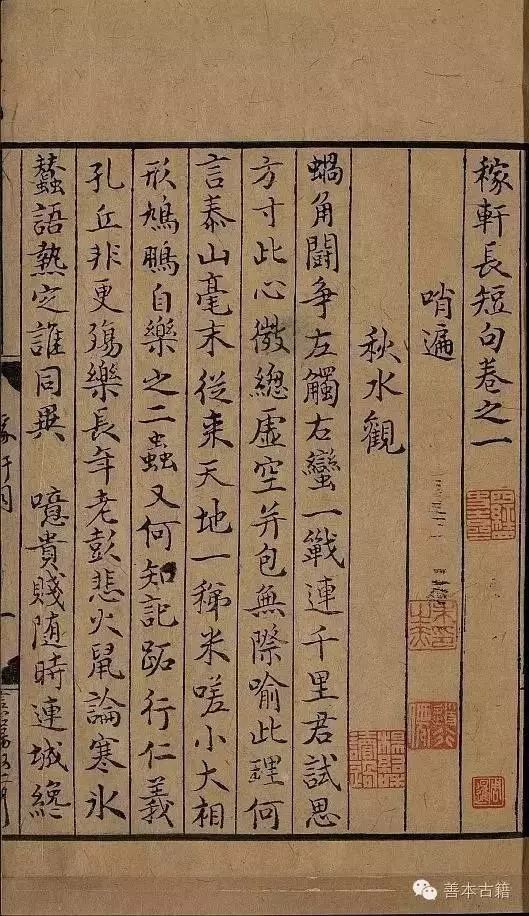 稼軒長短句卷之一
哨遍
秋水觀
蝸角鬪爭左觸右蠻一戰連千里君試思
方寸此心微總虛空并包無際喻此理何
言泰山毫末從来天地一稊米嗟小大相
形鳩鵬自樂之二蟲又何知記跖行仁義
孔丘非更殤樂長年老彭悲火鼠論寒氷
蠶語熱定誰同異 噫貴賤随時連城纔
善本古籍